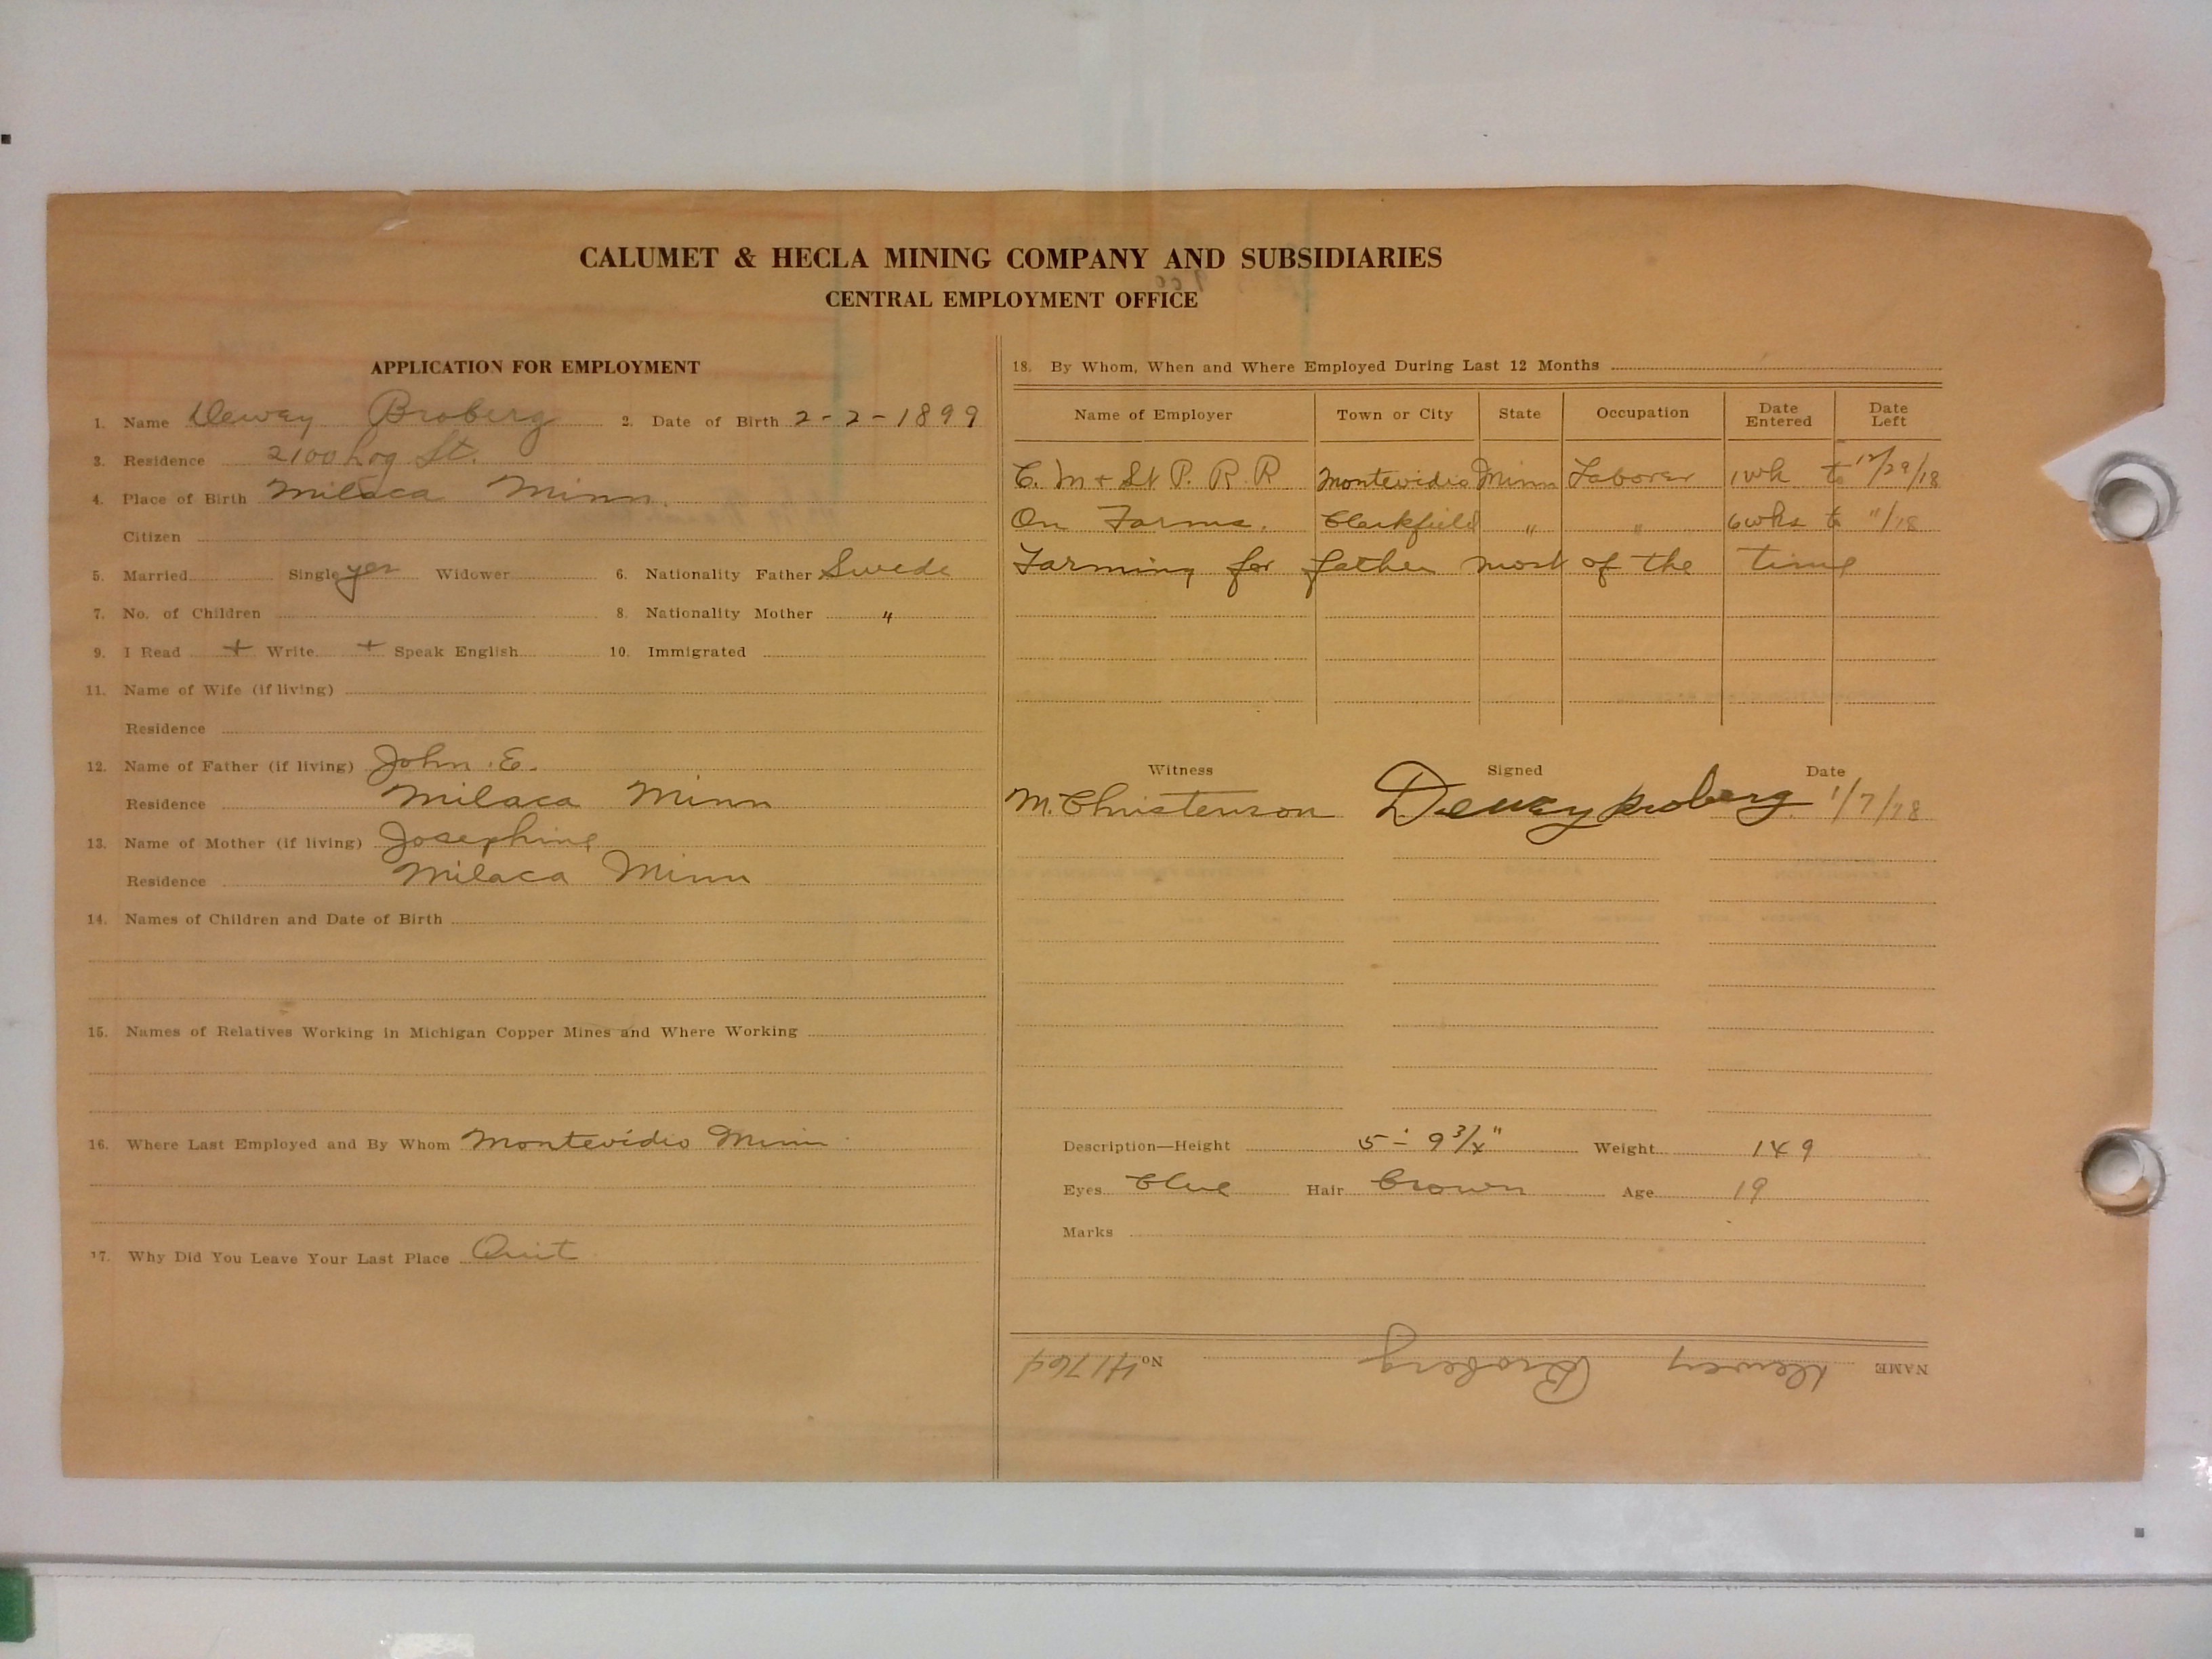 CALUMET & HECLA MINING COMPANY AND SUBSIDIARIES
CENTRAL EMPLOYMENT OFFICE
APPLICATION FOR EMPLOYMENT
1. Name Dewey Broberg 2. Date of Birth 2-2-1899
3. Residence 2100 Log St.
4. Place of Birth Milaca Minn.
Citizen
5. Married Single yes Widower 6. Nationality Father Swede
7. No. of Children 8. Nationality Mother "
9. I Read + Write + Speak English 10. Immigrated
11. Name of Wife (if living)
Residence
12. Name of Father (if living) John E.
Residence Milaca Minn
13. Name of Mother (if living) Josephine
Residence Milaca Minn
14. Names of Children and Date of Birth
15. Names of Relatives Working in Michigan Copper Mines and Where Working
16. Where Last Employed and By Whom Montevidio Minn
17. Why Did You Leave Your Last Place Quit
18. By Whom, When and Where Employed During Last 12 Months
Name of Employer Town or City State Occupation Date Entered Date Left
C. M & St P. R. R Montevidio Minn Laborer 1 wk to 12/29/18
On Farms. Clarkfield " " 6 wks to "/18
Farming for father most of the time
Witness Signed Date
M. Christenson Dewey Broberg 1/7/18
Description—Height 5'-9 3/4" Weight 149
Eyes Blue Hair Brown Age 19
Marks
NAME Dewey Broberg No 41764